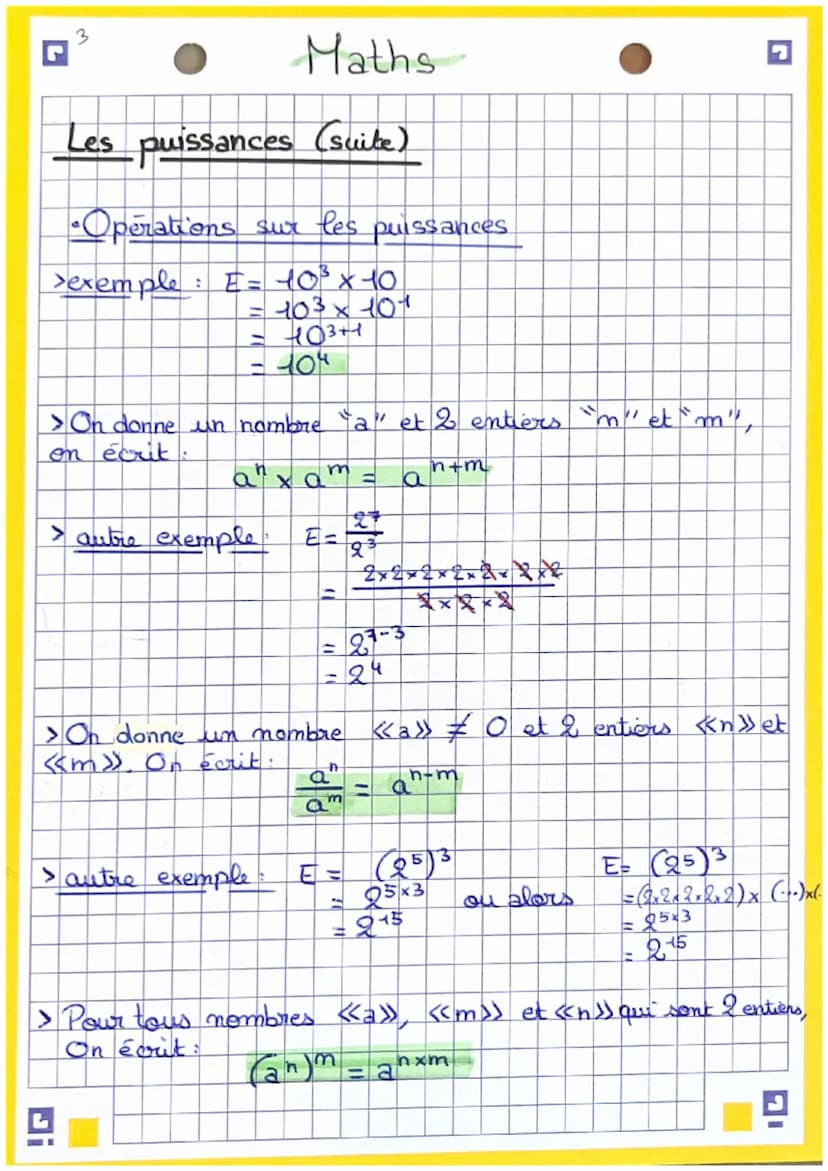 3
Maths
Les puissances (suite)
•Opérations sur les puissances
>exemple : E = 10³ x 10
= 10³ x 10¹
= 10³⁺¹
= 10⁴
> On donne un nombre "a" et 2 entiers "n" et "m",
on écrit :
aⁿ x aᵐ = aⁿ⁺ᵐ
> autre exemple : E = 2⁷/2³
= 2x2x2x2x2x2x2 / 2x2x2
= 2⁷⁻³
= 2⁴
> On donne un nombre «a» ≠ 0 et 2 entiers «n» et
«m». On écrit :
aⁿ/aᵐ = aⁿ⁻ᵐ
> autre exemple : E = (2⁵)³ ou alors E = (2⁵)³
= 2⁵ˣ³ =(2x2x2x2x2)x(...)x(.
= 2¹⁵ = 2⁵ˣ³
= 2¹⁵
> Pour tous nombres «a», «m» et «n» qui sont 2 entiers,
On écrit :
(aⁿ)ᵐ = aⁿˣᵐ